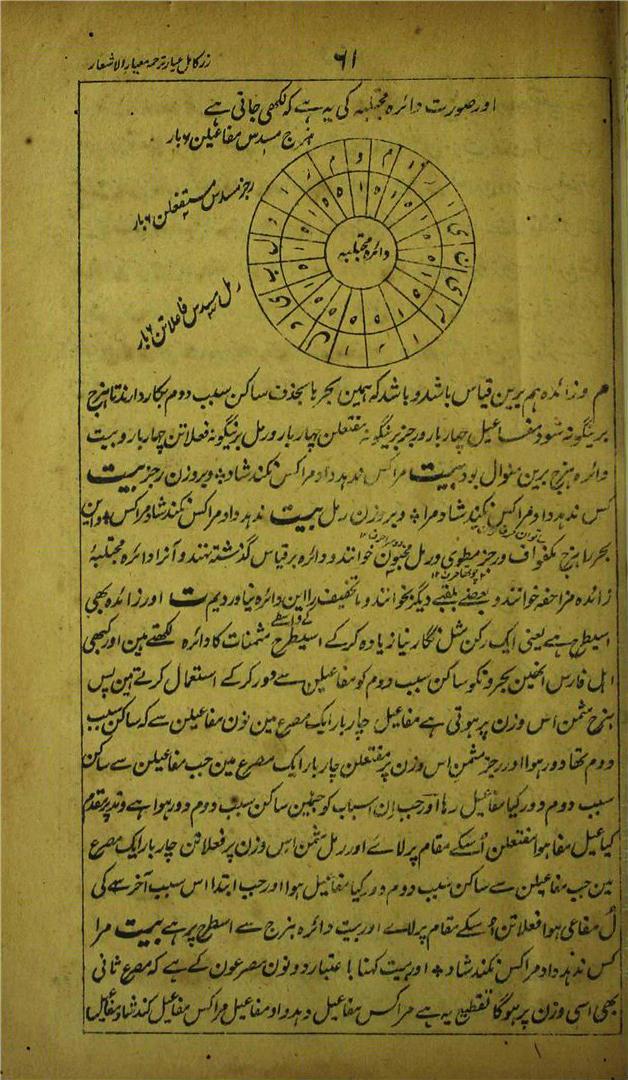 زر کامل عیار ترجمہ معیار الاشعار
۶۱
اور صورت دائرہ مجتلبہ کی یہ ہے کہ لکھی جاتی ہے
ہزج مسدس مفاعیلن ۶ بار
رجز مسدس مستفعلن ۶ بار
رمل مسدس فاعلاتن ۶ بار
دائرہ مجتلبہ
م و زائدہ ہم برین قیاس باشد و باشد کہ ہمین بحر ہا بحذف ساکن سبب دوم بکار دارند تا ہزج
برینگونہ شود مفاعیل چہار بار و رجز برینگونہ مفتعلن چہار بار و رمل برینگونہ فعلاتن چہار بار و بیت
دائرہ ہزج برین منوال بود بیت مرا کس ندہد داد مرا کس نکند شاد ٭ و بر وزن رجز بیت
کس ندہد داد مرا کس نکند شاد مرا ٭ و بر وزن رمل بیت ندہد داد مرا کس نکند شاد مرا کس ٭ و این
بحر را ہزج مکفوف و رجز مطوی و رمل مخبون خوانند و دائرہ بر قیاس گذشتہ نہند و آنرا دائرہ مجتلبۂ
زائدہ مزاحفہ خوانند و بعضے بلقبے دیگر بخوانند و ما تخفیف را این دائرہ نیاوردیم ت اور زائدہ بھی
اسیطرح ہے یعنی ایک رکن شل نگار نیا زیادہ کر کے اسیطرح مثمنات کا دائرہ لکھتے ہین اور کبھی
اہل فارس انھین بحرونکو ساکن سبب دوم کو مفاعیلن سے دور کر کے استعمال کرتے ہین پس
ہزج مثمن اس وزن پر ہوتی ہے مفاعیل چار بار ایک مصرع مین نون مفاعیلن سے کہ ساکن سبب
دوم تھا دور ہوا اور رجز مثمن اس وزن پر مفتعلن چار بار ایک مصرع مین جب مفاعیلن سے ساکن
سبب دوم دور کیا مفاعیل رہا اور جب ان اسباب کو جنمین ساکن سبب دوم دور ہوا ہے وتد پر مقدم
کیا عیل مفا ہوا مفتعلن اُسکے مقام پر لائے اور رمل مثمن اس وزن پر فعلاتن چار بار ایک مصرع
مین جب مفاعیلن سے ساکن سبب دوم دور کیا مفاعیل ہوا اور جب ابتدا اس سبب آخر سے کی
لُ مفاعی ہوا فعلاتن اُسکے مقام پر لائے اور بیت دائرہ ہزج سے اسطرح پر ہے بیت مرا
کس ندہد داد مرا کس نکند شاد ٭ اور بیت کہنا باعتبار دونون مصرعون کے ہے کہ مصرع ثانی
بھی اسی وزن پر ہوگا تقطیع یہ ہے مرا کس مفاعیل دہد داد مفاعیل مرا کس مفاعیل کند شاد مفاعیل